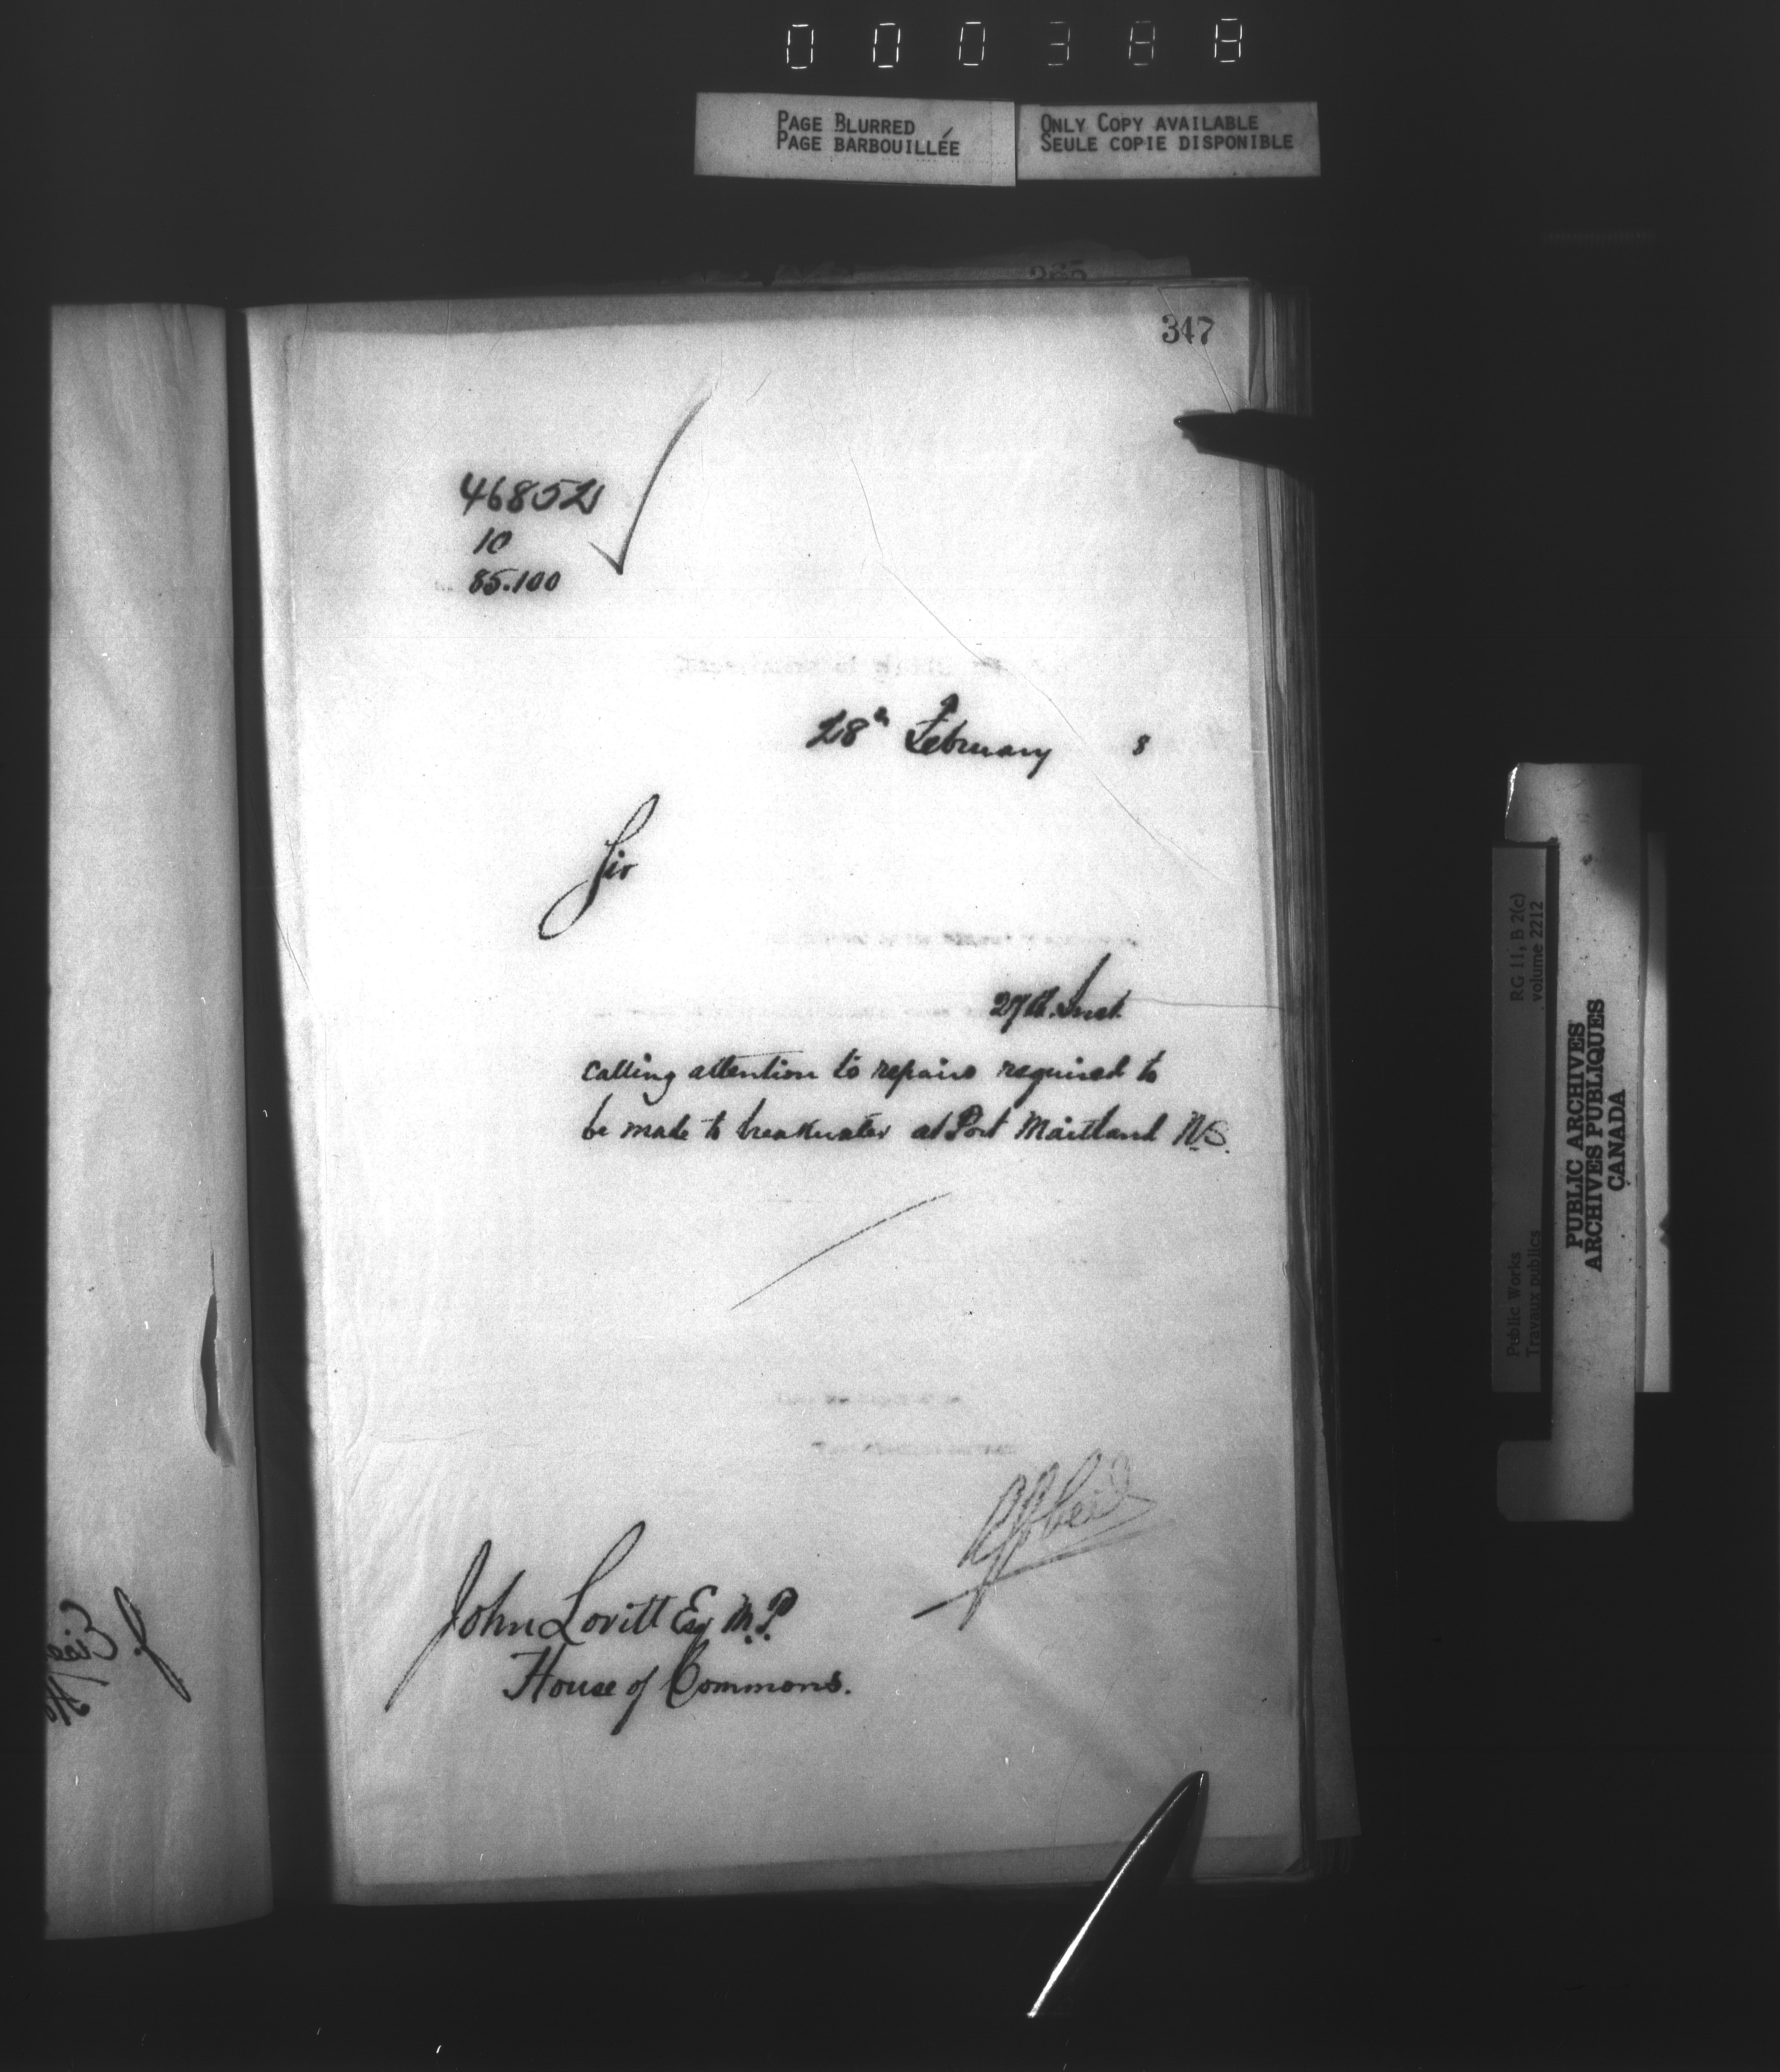 000388
PAGE BLURRED
PAGE BARBOUILLÉE
ONLY COPY AVAILABLE
SEULE COPIE DISPONIBLE
347
46852
10
85.100
28th February 8
Sir
27th. Inst.
calling attention to repairs required to
be made to breakwater at Port Maitland N.S.
John Lovitt Esq M.P.
House of Commons.
RG 11, B 2(c)
volume 2212
Public Works
Travaux publics
PUBLIC ARCHIVES
ARCHIVES PUBLIQUES
CANADA